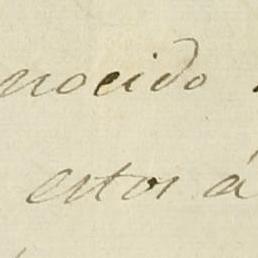 nocido
estos á